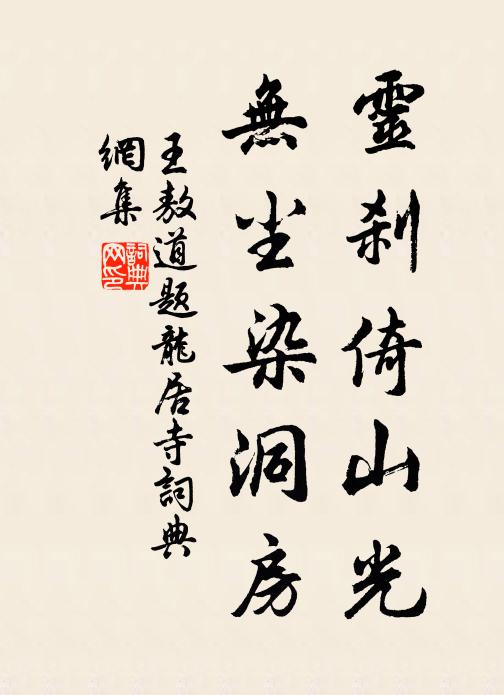 靈刹倚山光
無尘染洞房
王敖道题龍居寺詞典
網集
詞典
网印